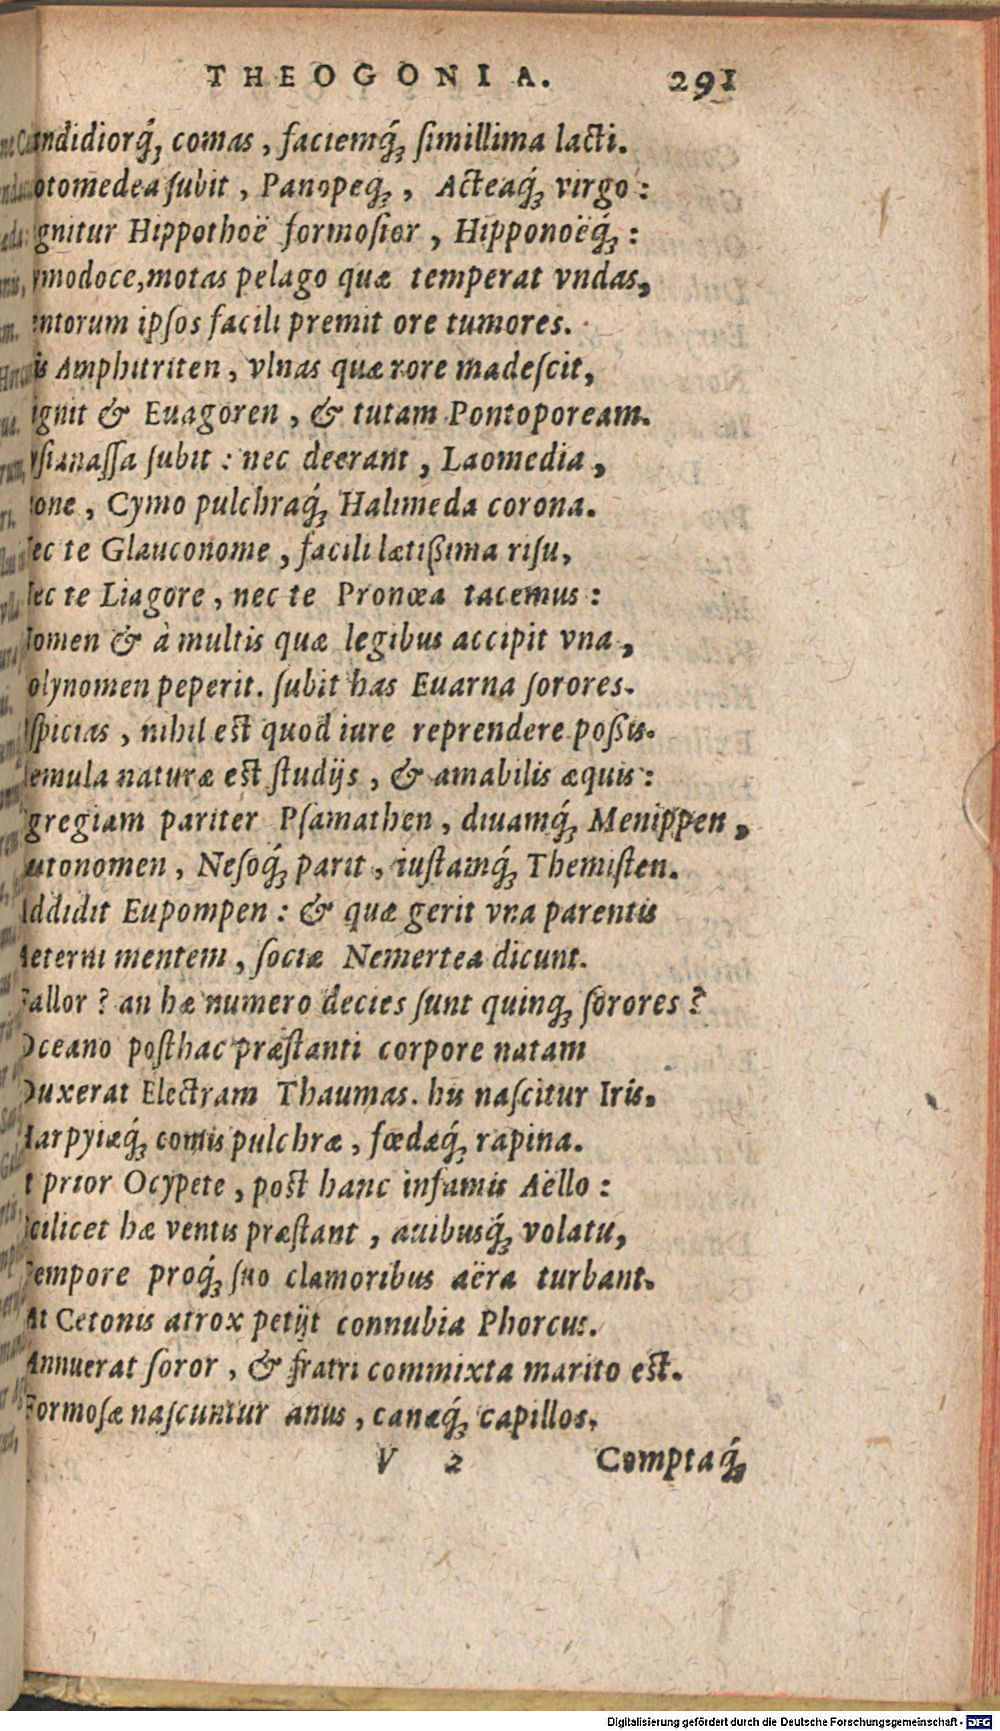 THEOGONIA. 291
Candidiorq́; comas, faciemq́; ſimillima lacti.
otomedea ſubit, Panopeq́;, Acteaq́; virgo:
gnitur Hippothoë formoſior, Hipponoëq́;:
ymodoce, motas pelago quæ temperat vndas,
entorum ipſos facili premit ore tumores.
is Amphitriten, vlnas quæ rore madeſcit,
ignit & Euagoren, & tutam Pontopoream.
yſianaſſa ſubit: nec deerant, Laomedia,
ione, Cymo pulchraq́; Halimeda corona.
ec te Glauconome, facili lætißima riſu,
ec te Liagore, nec te Pronœa tacemus:
Nomen & à multis quæ legibus accipit vna,
olynomen peperit. ſubit has Euarna ſorores.
ſpicias, nihil est quod iure reprendere poßis.
emula naturæ est ſtudijs, & amabilis æquis:
gregiam pariter Pſamathen, diuamq́; Menippen,
utonomen, Neſoq́; parit, iuſtamq́; Themiſten.
Addidit Eupompen: & quæ gerit vna parentis
Aeterni mentem, ſociæ Nemertea dicunt.
Fallor? an hæ numero decies ſunt quinq; ſorores?
Oceano poſthac præſtanti corpore natam
Duxerat Electram Thaumas. his naſcitur Iris.
Harpyiæq́; comis pulchræ, fœdæq́; rapina.
t prior Ocypete, post hanc infamis Aëllo:
cilicet hæ ventis præſtant, auibusq́; volatu,
Tempore proq́; ſuo clamoribus aëra turbant.
At Cetonis atrox petijt connubia Phorcus.
Annuerat ſoror, & fratri commixta marito est.
Formoſæ naſcuntur anus, canæq́; capillos,
V 2 Comptaq́;
Digitalisierung gefördert durch die Deutsche Forschungsgemeinschaft - DFG